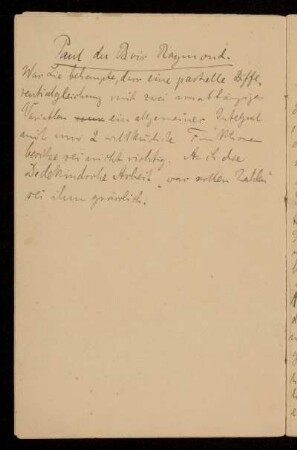 Paul du Bois Reymond.
War die behauptg, dass eine partielle Diffe
rentialgleichung mit zwei unabhängige
Variablen ein allgemeiner Integral
mit nur 2 willkürliche Funktionen
besitze sei nicht richtig. Auch die
Dedekindsche Arbeit " was sollen Zahlen"
sei ihm grässlich.